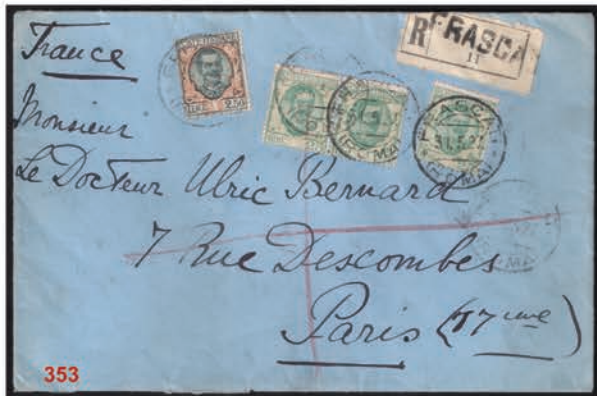 France
R FRASCA
11
2.50
FRASCATI
(ROMA)
Monsieur
Le Docteur Ulric Bernard
7 Rue Descombes
Paris (17eme)
353